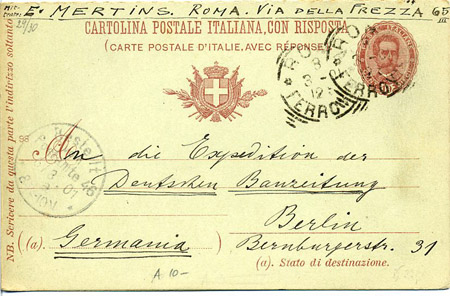 E. MERTINS, ROMA. VIA DELLA FREZZA 65
29/30
CARTOLINA POSTALE ITALIANA, CON RISPOSTA
(CARTE POSTALE D'ITALIE, AVEC RÉPONSE)
ROMA
FERROVIA
95
An die Expedition der
Deutschen Bauzeitung
Berlin
(a). Germania Bernburgerstr. 31
(a). Stato di destinazione.
A 10-
Bestellt
NB. Scrivere da questa parte l'indirizzo soltanto